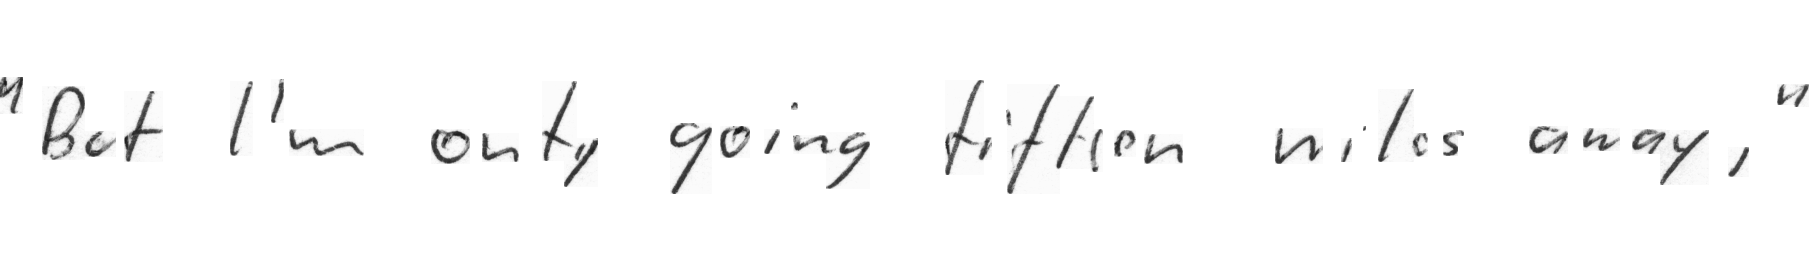 "But I'm only going fifteen miles away,"